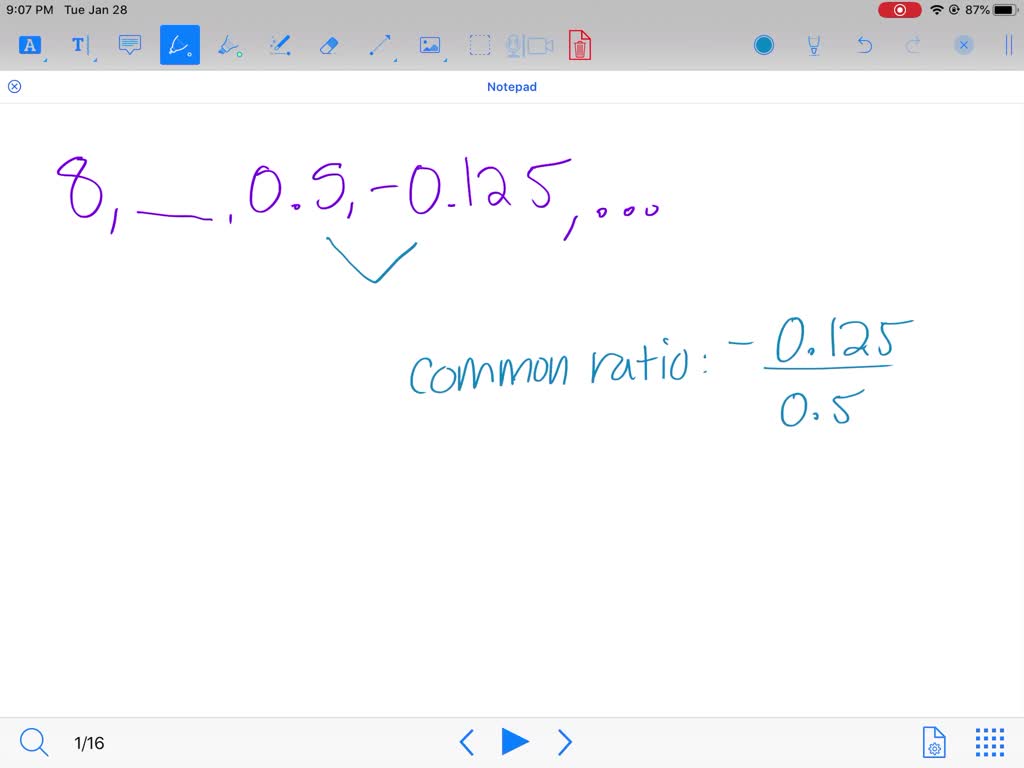 9:07 PM Tue Jan 28 87%
A T
Notepad
8, __, 0.5, -0.125, ...
common ratio: - 0.125
0.5
1/16